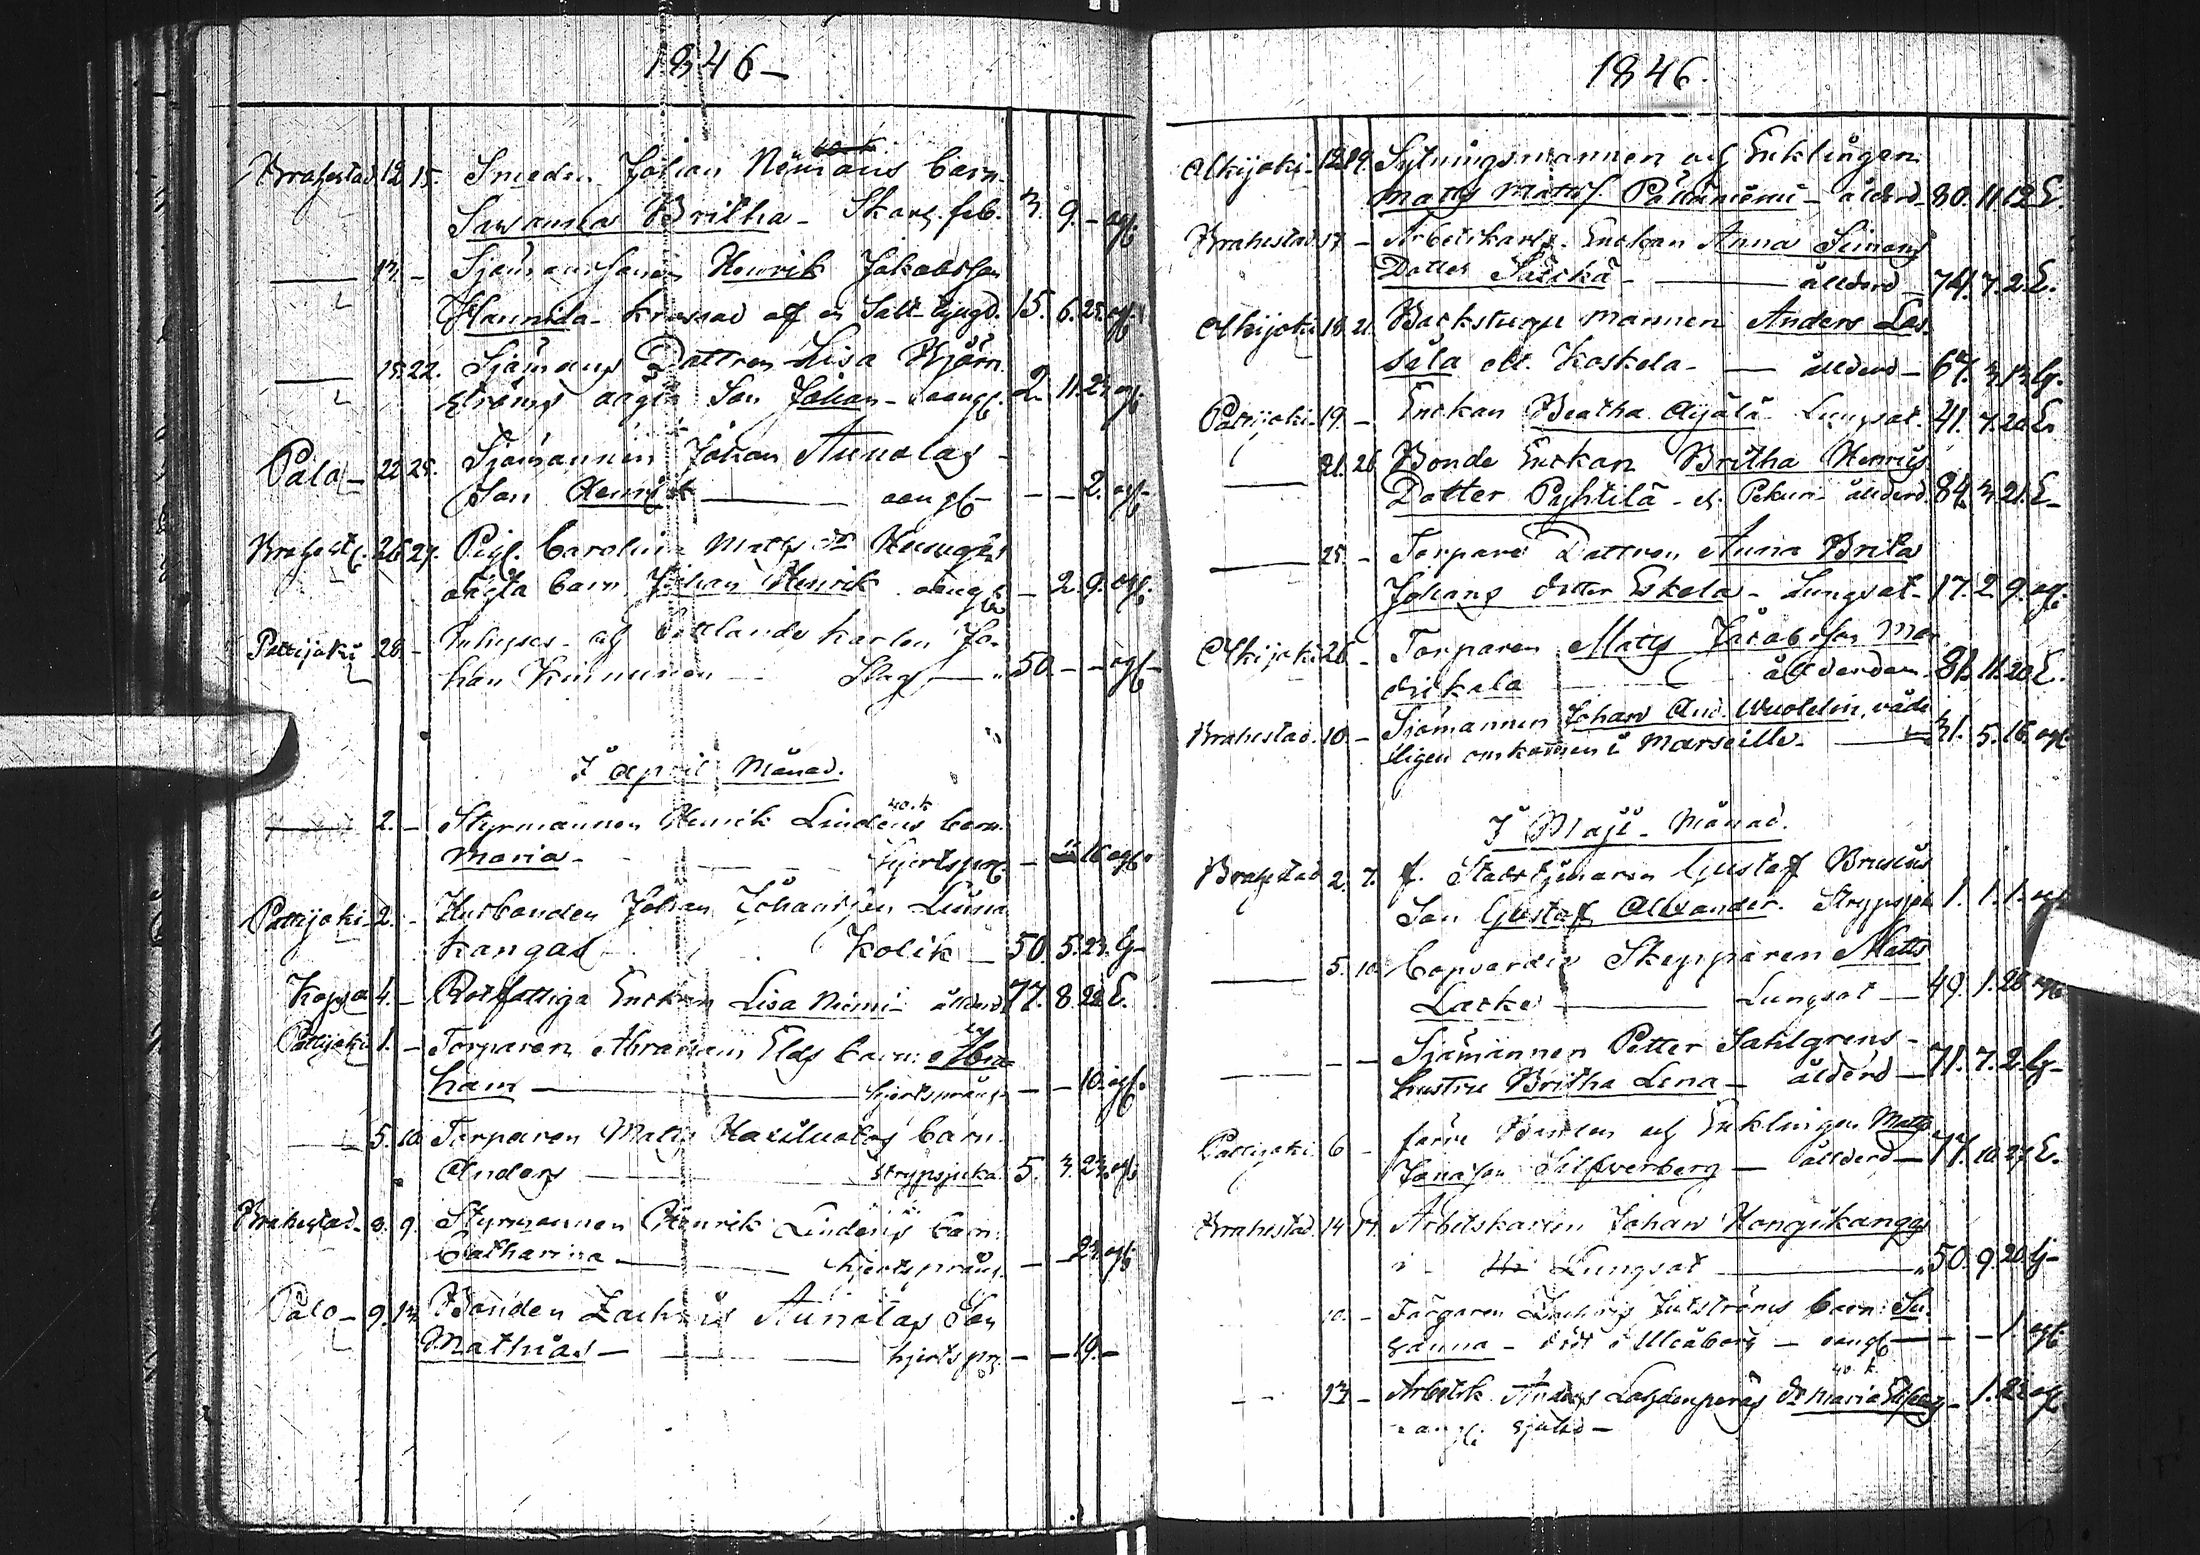 1846 –
Brahestad 12 15. Smeden Johan Nemans barn
Susanna Britha – Skarl. feb. 3. 9. – ogf.
13. – Sjömanssonen Henrik Jakobsson
Hannila krossad af en Salt 15. 6. 25. ogf.
15 22. Sjömans Dottren Lisa Björn
ströms oägta Son Johan – oangf. 2. 11. 23 ogf.
Palo – 22 25. Sjömannen Johan Aunolas
Son Henrik — oangf – – – 2. ogf.
Brahest. 26 29. Pig. Carolina Matts dr
oägta barn Johan Henrik oangf – 2. 9. ogf.
Pattijoki 28 – Inhyses af Jo-
han Kinnunen Slag — 50 – – ogf.
I April Månad.
2. – Styrmannen Henrik Lindéns barn 40. k.
Maria – Hjertspr. – 16 ogf.
Pattijoki 2. – Husbonden Johan Johansson Linna
kangas Kolik – 50. 5. 23. G –
Kopsa 4. – Rotfattiga Enckan Lisa Niemi – ålderd 77. 8. 22 E.
Pattijoki 1. – Torparen Abraham Elds barn Abra
ham — hjertspräng. – – 10. ogf.
5. 10. Torparen Matts barn
Anders — Strypsjuka 5. 3. 23. ogf.
Brahestad 8. 9. Styrmannen Henrik Lindéns barn
Catharina — hjertspräng. – – 23. ogf.
Palo – 9. 13. Bonden Zachris Aunolas Son
Mathias – — hjertspr. – – 19. –
1846.
Olkijoki 12 19. Sytningsmannen och Enklingen
Matts Mattss. – ålderd 80. 11. 12 E.
Brahestad 17 – Arbetskarls Enckan Anna Simons
Dotter — ålderd 74. 7. 2. E.
Olkijoki 18. 21. Backstugu mannen Anders Las
sila ell. Koskela – — ålderd – 67. 3. 13. G.
Pattijoki 19. – Enckan Beatha Ojala Lungsot. 41. 7. 20 E.
21. 26 Bonde Enckan Britha Henriks
Dotter Pyhtilä – el. Pekuri ålderd 84. 3. 21. E –
25. – Torpare Dottren Anna Brita
Johans dotter Eskola – Lungsot – 17. 2. 9. ogf.
Olkijoki 26 – Torparen Matts Jacobsson
ålderdom 11. 20 E.
Brahestad. 10. – Sjömannen Johan And. Wuolelin, våde
ligen omkommen i Marseille. — 31. 5. 16. ogf.
I Maji – Månad.
Brahestad 2. 7. f. Stadstjenaren Gustaf Brusiis
Son Gustaf Alexander. Strypsju. 1. 1. 1. ogf
5. 10. Copvardie Skepparen Matts
Lacke — Lungsot — 49. 1. 26. ogf
– – Sjömannen Petter Sahlgrens –
hustru Britha Lena – ålderd — 71. 7. 2. G –
Pattijoki 6 – förre Bonden och Enklingen Matts
Jonasson Silfverberg — ålderd — 77. 10. 27. E.
Brahestad 14 17. Arbetskarlen Johan Kongikangas
Lungsot — 50. 9. 20. G –
10. – Färgaren Zachris Jutströms barn Su
sanna – död i Uleåborg – oangf – – – 1. ogf.
13. – Arbetsk. Anders Lahdenperäs dr Maria 40. k. – 1. 22 ogf.